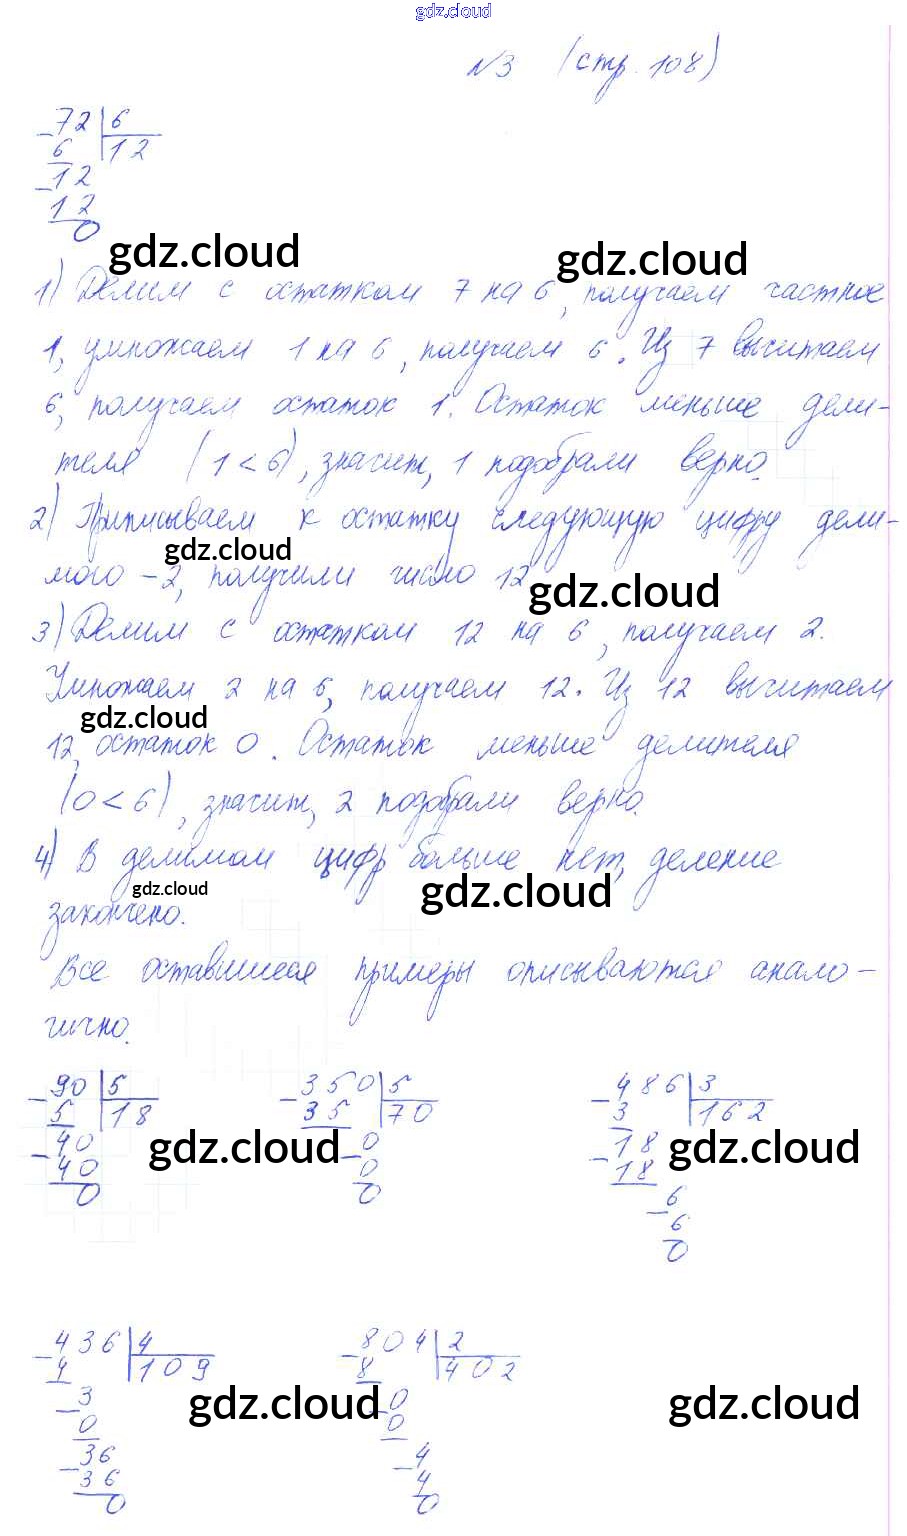 gdz.cloud
№3 (стр. 108)
72 | 6
6 12
12
12
0
gdz.cloud gdz.cloud
1) Делим с остатком 7 на 6, получаем частное
1, умножаем 1 на 6, получаем 6. Из 7 вычитаем
6, получаем остаток 1. Остаток меньше дели-
теля (1 < 6), значит, 1 подобрали верно.
2) Приписываем к остатку следующую цифру дели-
gdz.cloud
мого - 2, получили число 12
gdz.cloud
3) Делим с остатком 12 на 6, получаем 2.
Умножаем 2 на 6, получаем 12. Из 12 вычитаем
gdz.cloud
12, остаток 0. Остаток меньше делителя
(0 < 6), значит, 2 подобрали верно.
4) В делимом цифр больше нет, деление
gdz.cloud gdz.cloud
закончено.
Все оставшиеся примеры описываются анало-
гично.
90 | 5 350 | 5 486 | 3
5 18 35 70 3 162
40 0 18
gdz.cloud gdz.cloud
40 0 18
0 0 6
6
0
436 | 4 804 | 2
4 109 8 402
3 0
gdz.cloud gdz.cloud
0 0
36 4
36 4
0 0